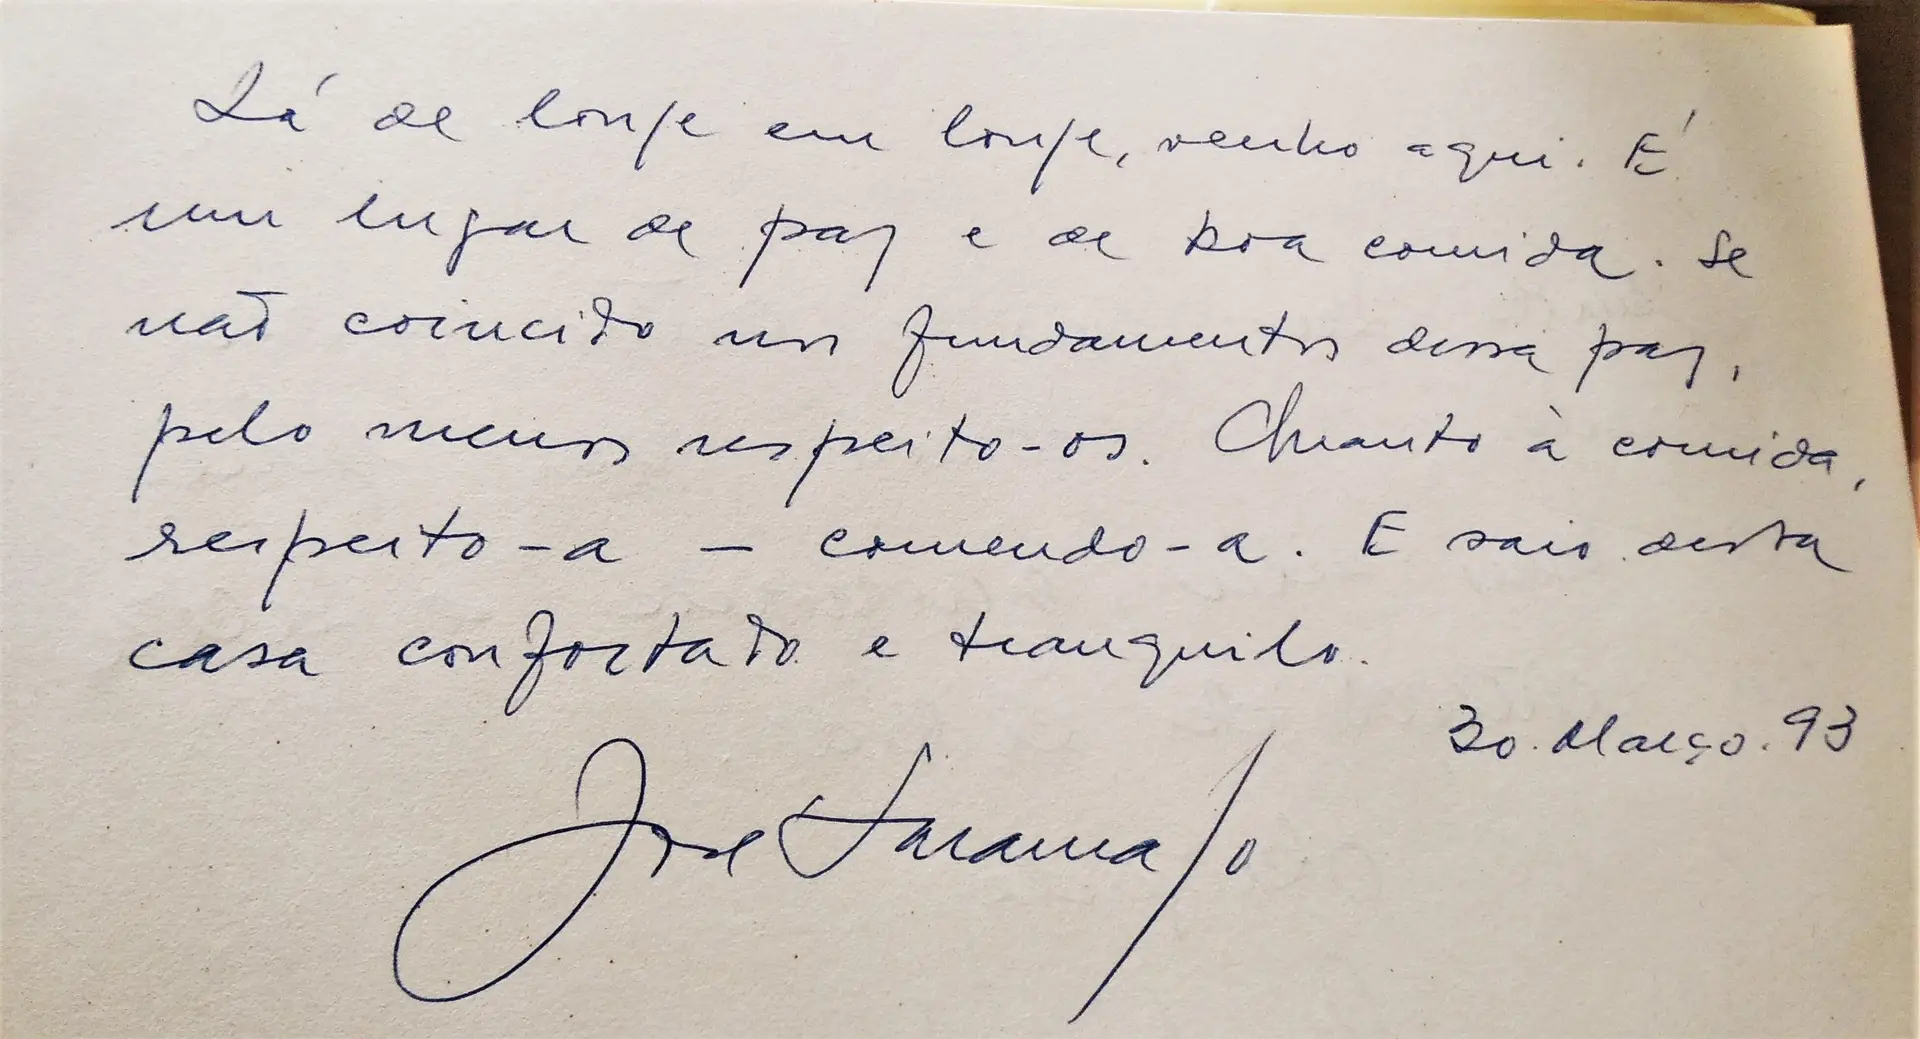 Lá de longe em longe, venho aqui. É
um lugar de paz e de boa comida. Se
não coincido nos fundamentos dessa paz,
pelo menos respeito-os. Quanto à comida,
respeito-a – comendo-a. E saio desta
casa confortado e tranquilo.
30.Março.93
José Saramago